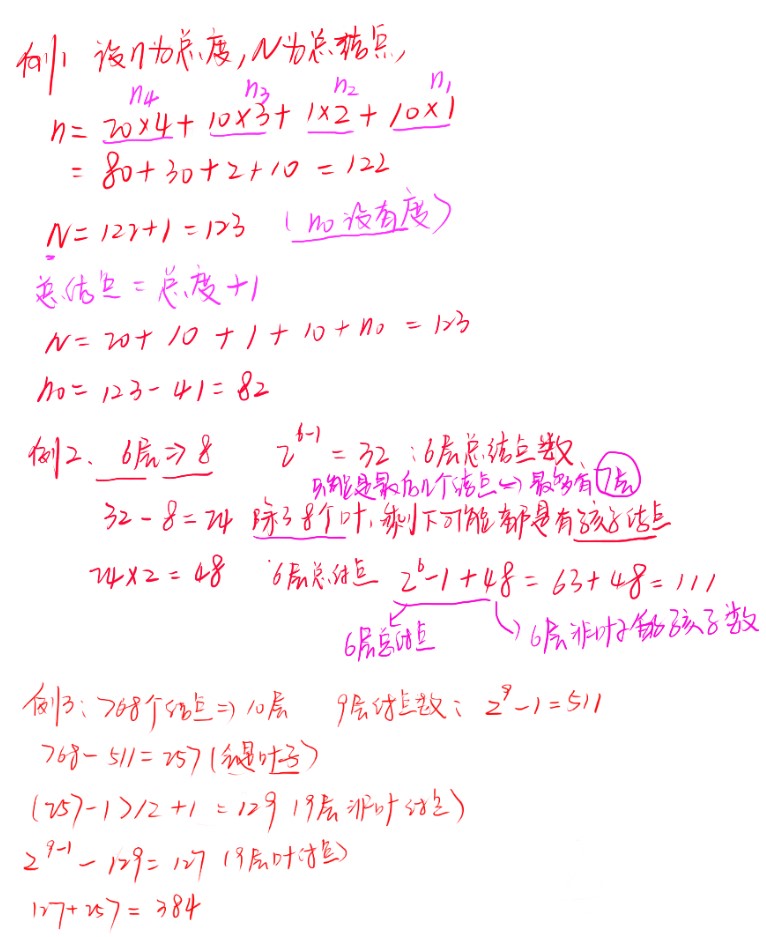 例1 设n为总度,N为总结点,
n4 n3 n2 n1
n= 20×4+ 10×3+ 1×2 + 10×1
= 80+30+2+10 = 122
N=122+1=123 (n0没有度)
总结点=总度+1
N= 20+ 10 + 1 + 10 + n0 = 123
n0= 123-41=82
例2、6层⇒8 2^6-1 = 32 :6层总结点数
可能是最后几个结点⇒最多有7层
32-8=24 除了8个叶,剩下可能都是有孩子结点
24×2=48 6层总结点 2^6-1+48=63+48=111
6层总结点 6层非叶子的孩子数
例3: 768个结点⇒10层 9层结点数: 2^9-1=511
768-511=257(全是叶子)
(257-1)/2+1 = 129 (9层非叶结点)
2^9-1-129=127 (9层叶结点)
127+257=384